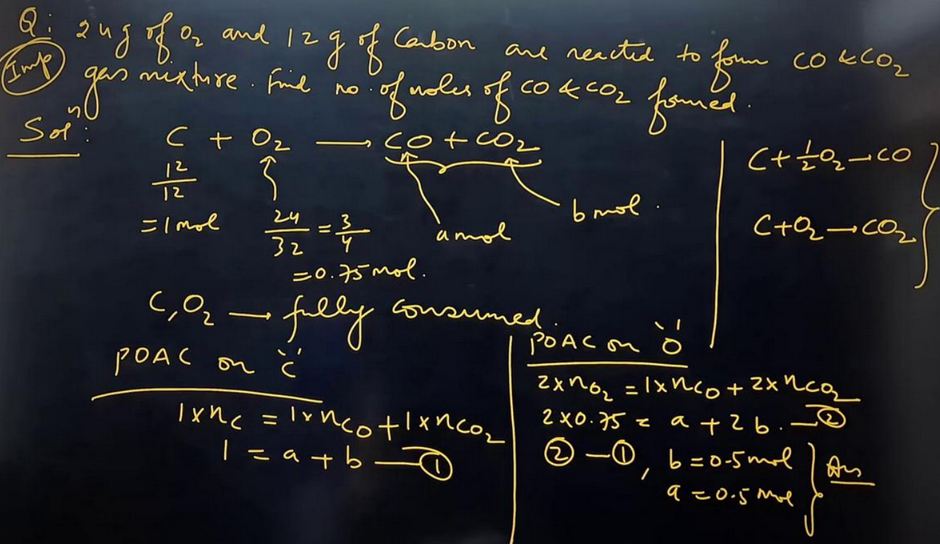 Q: 24g of O₂ and 12 g of Carbon are reacted to form CO & CO₂
Imp gas mixture. Find no. of moles of CO & CO₂ formed.
Solⁿ:
C + O₂ → CO + CO₂
12/12
= 1 mol
24/32 = 3/4
= 0.75 mol.
a mol
b mol.
C + 1/2 O₂ → CO
C + O₂ → CO₂
C, O₂ → fully consumed.
POAC on "C"
1 × nC = 1 × nCO + 1 × nCO₂
1 = a + b —①
POAC on "O"
2 × nO₂ = 1 × nCO + 2 × nCO₂
2 × 0.75 = a + 2b. —②
② — ①, b = 0.5 mol
a = 0.5 mol
Ans